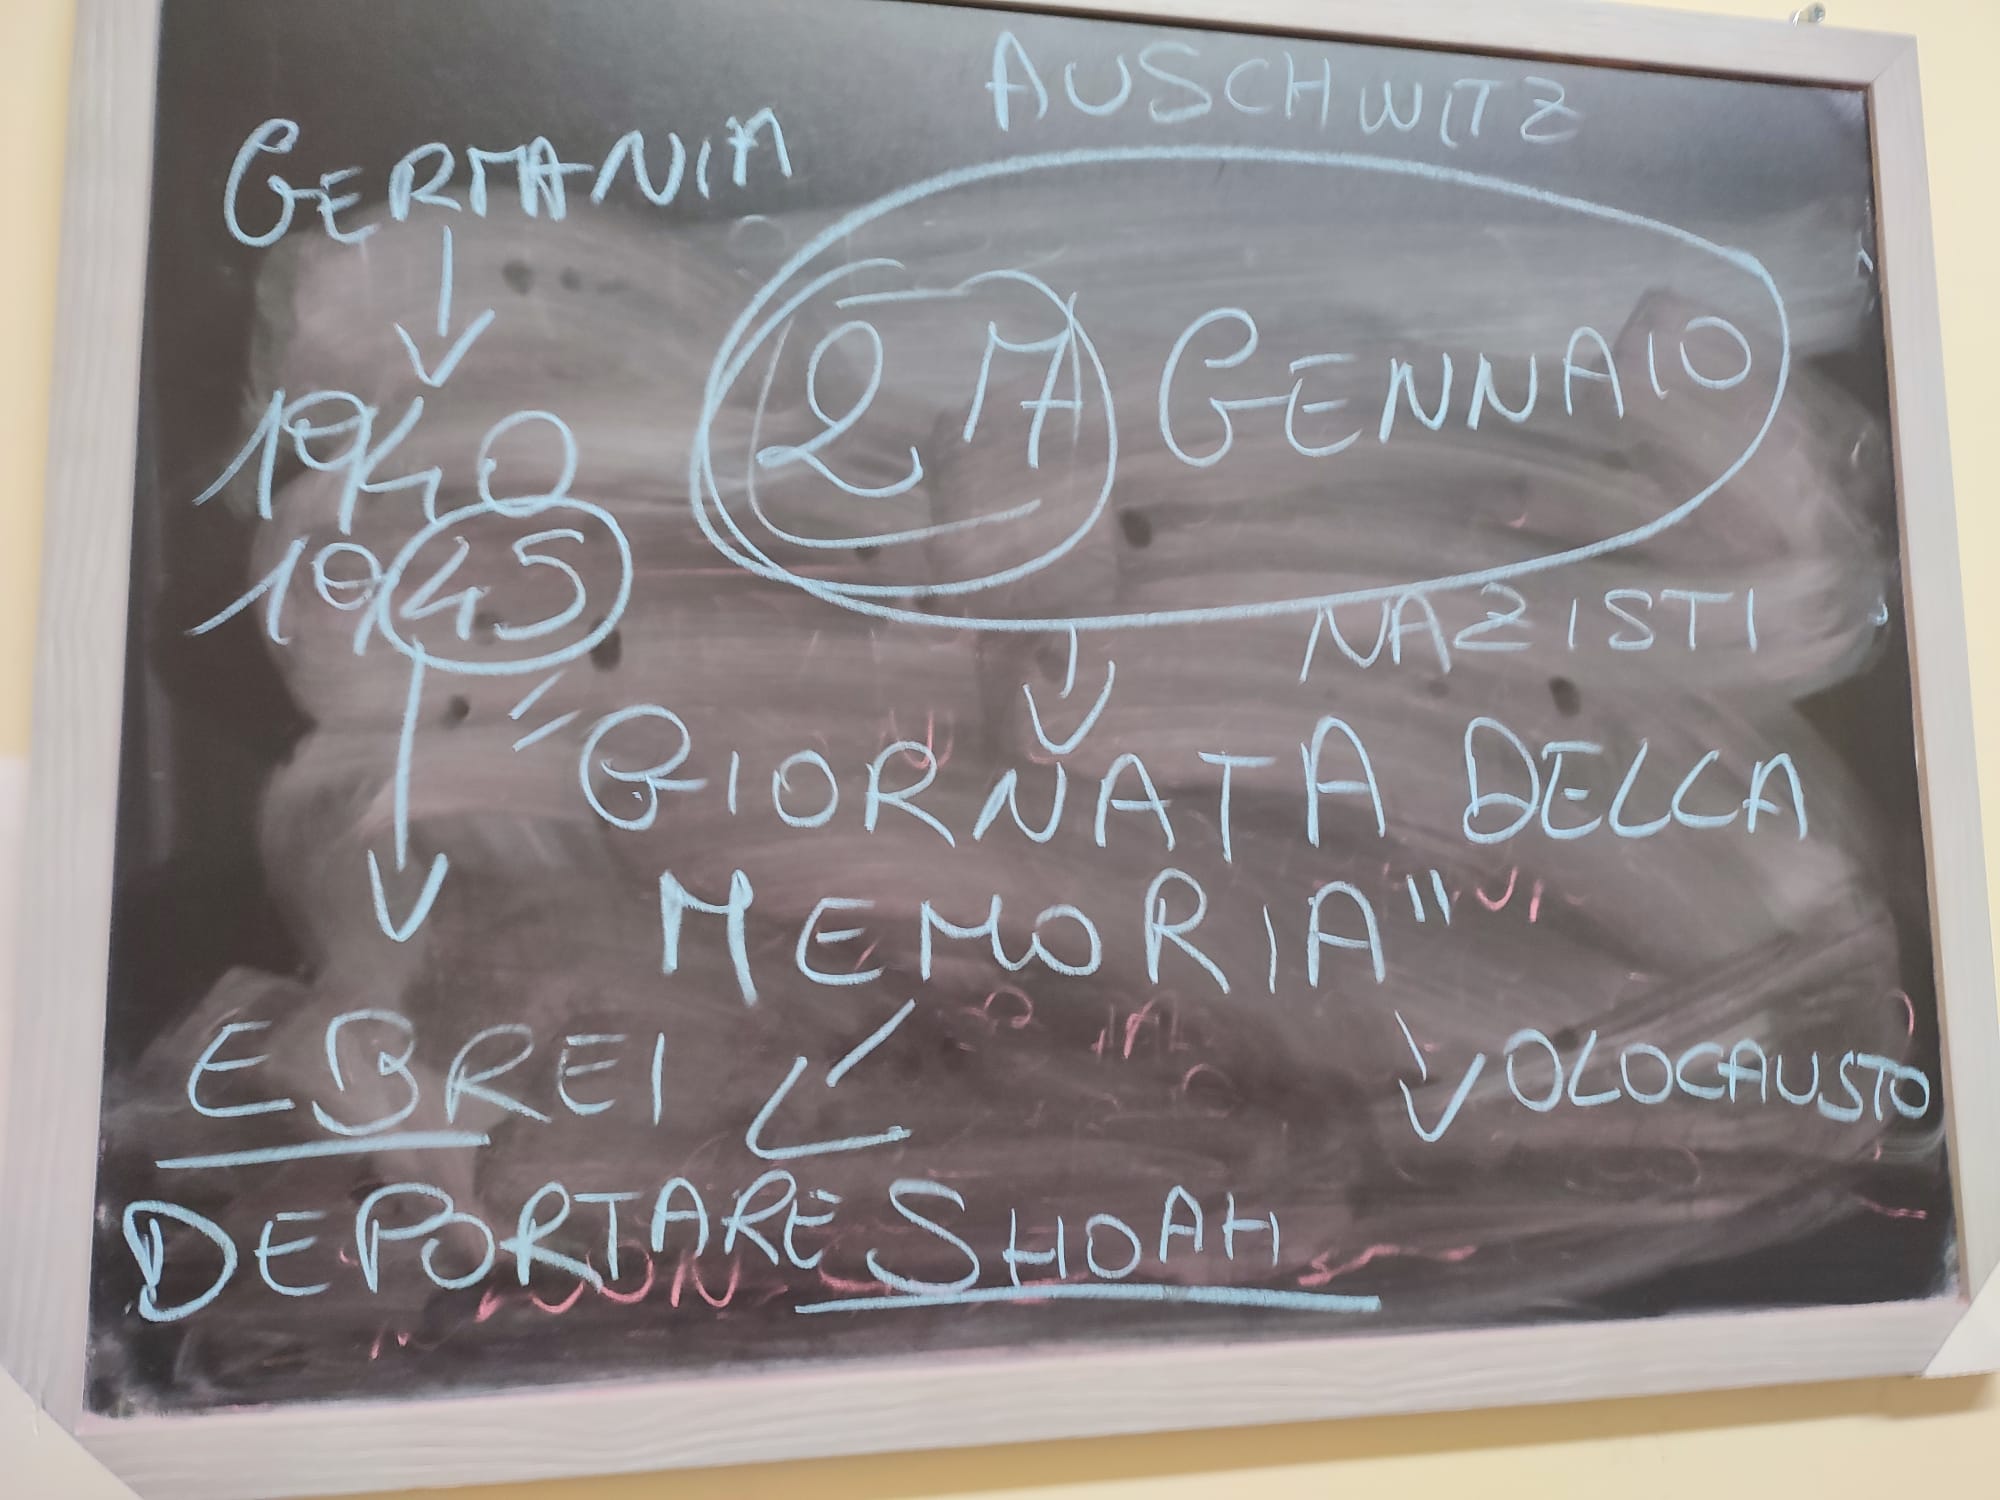 AUSCHWITZ
GERMANIA
27 GENNAIO
1940
1945
NAZISTI
"GIORNATA DELLA
MEMORIA"
EBREI
OLOCAUSTO
DEPORTARE SHOAH